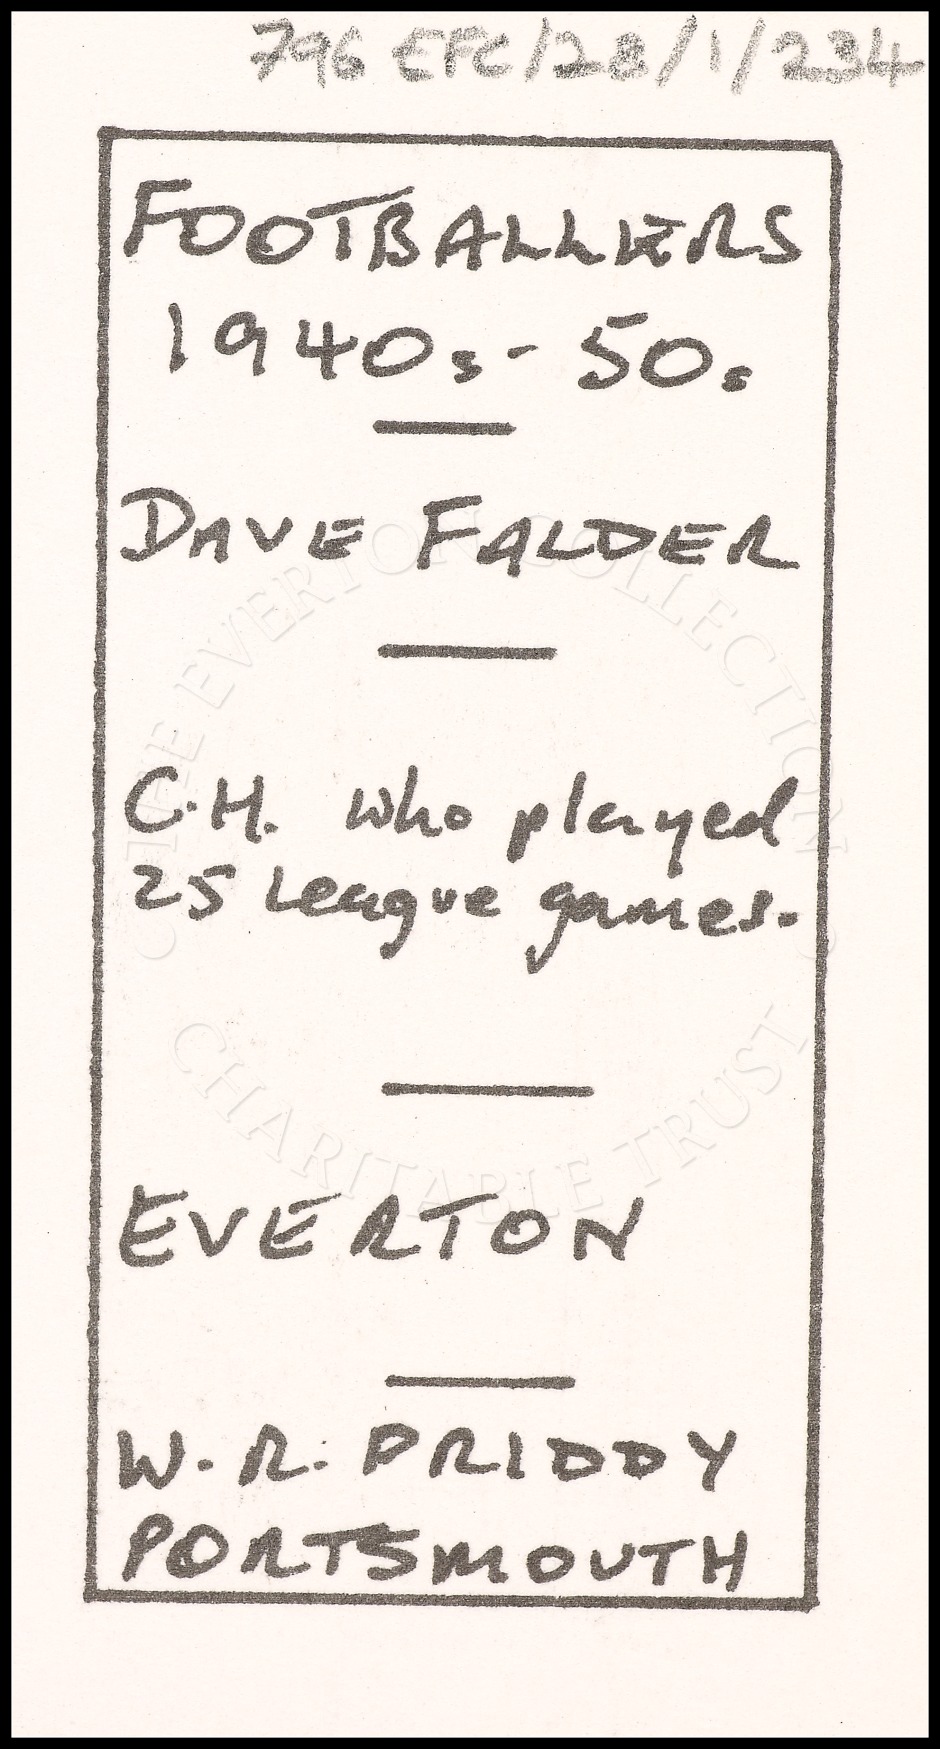 796 EFC/28/1/234
FOOTBALLERS
1940s - 50s
DAVE FALDER
C.H. who played
25 League games.
EVERTON
W. R. PRIDDY
PORTSMOUTH
THE EVERTON COLLECTION
CHARITABLE TRUST